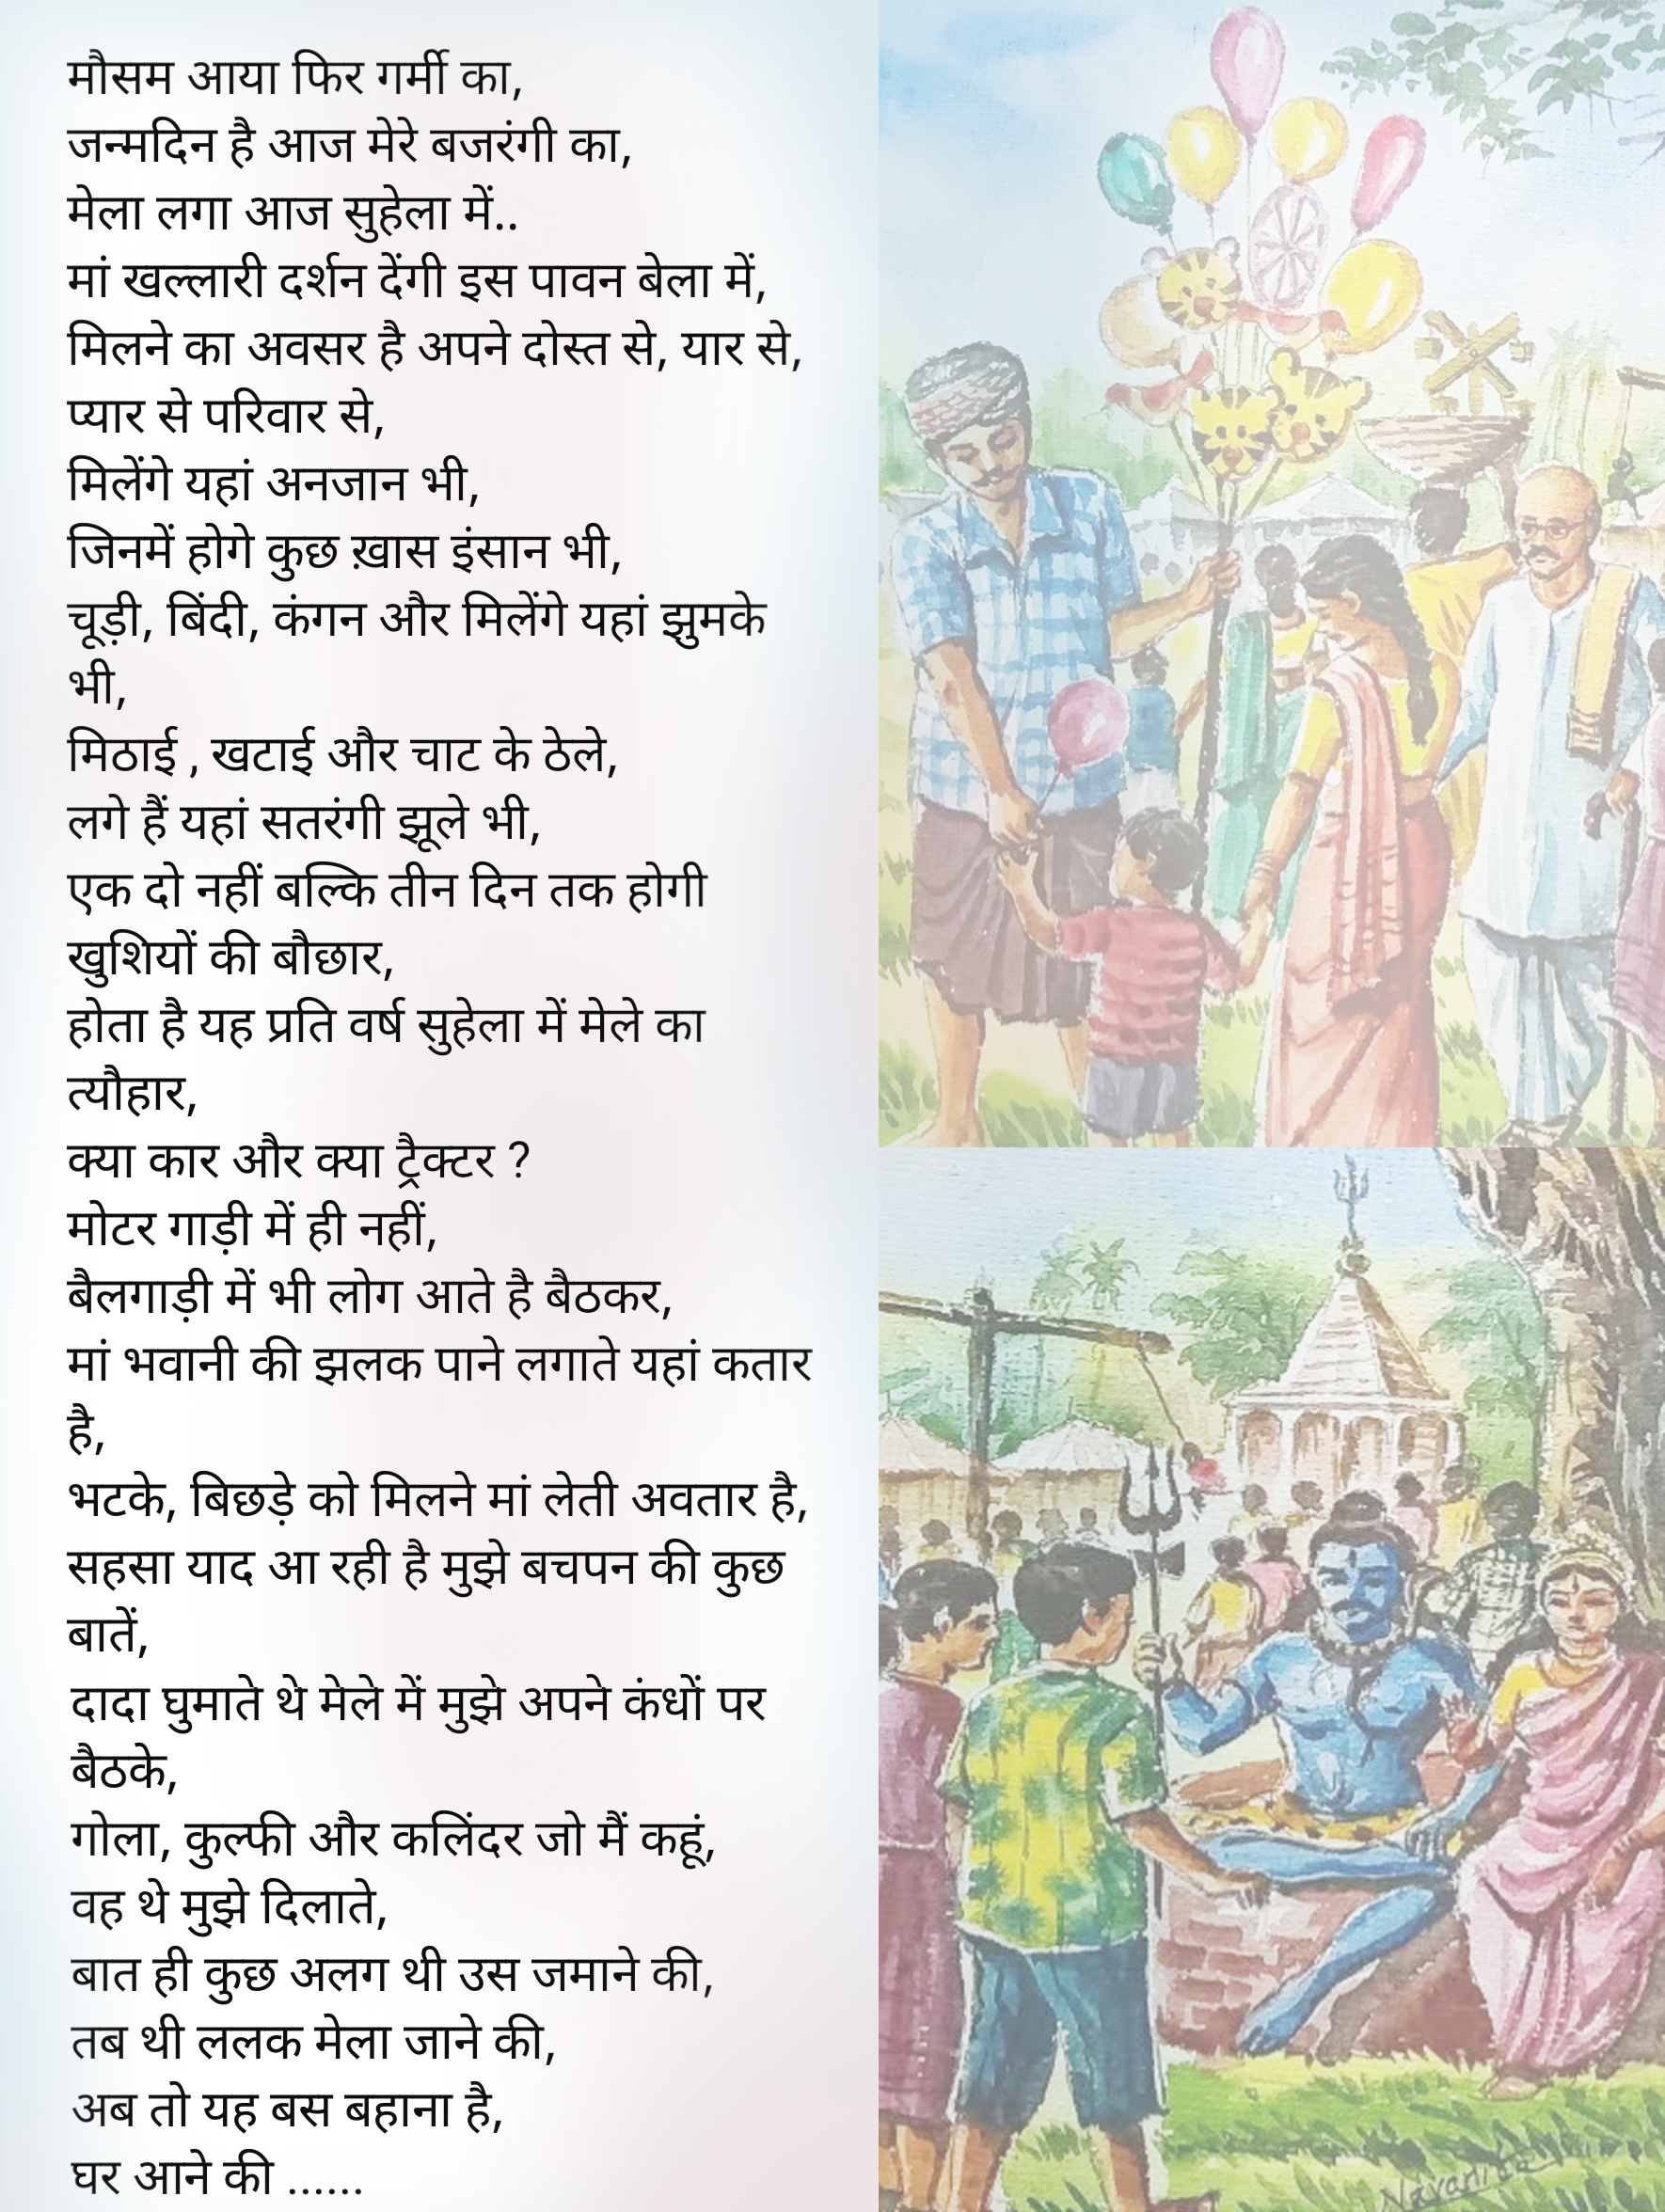 मौसम आया फिर गर्मी का,
जन्मदिन है आज मेरे बजरंगी का,
मेला लगा आज सुहेला में..
मां खल्लारी दर्शन देंगी इस पावन बेला में,
मिलने का अवसर है अपने दोस्त से, यार से,
प्यार से परिवार से,
मिलेंगे यहां अनजान भी,
जिनमें होगे कुछ ख़ास इंसान भी,
चूड़ी, बिंदी, कंगन और मिलेंगे यहां झुमके
भी,
मिठाई , खटाई और चाट के ठेले,
लगे हैं यहां सतरंगी झूले भी,
एक दो नहीं बल्कि तीन दिन तक होगी
खुशियों की बौछार,
होता है यह प्रति वर्ष सुहेला में मेले का
त्यौहार,
क्या कार और क्या ट्रैक्टर ?
मोटर गाड़ी में ही नहीं,
बैलगाड़ी में भी लोग आते है बैठकर,
मां भवानी की झलक पाने लगाते यहां कतार
है,
भटके, बिछड़े को मिलने मां लेती अवतार है,
सहसा याद आ रही है मुझे बचपन की कुछ
बातें,
दादा घुमाते थे मेले में मुझे अपने कंधों पर
बैठके,
गोला, कुल्फी और कलिंदर जो मैं कहूं,
वह थे मुझे दिलाते,
बात ही कुछ अलग थी उस जमाने की,
तब थी ललक मेला जाने की,
अब तो यह बस बहाना है,
घर आने की ......